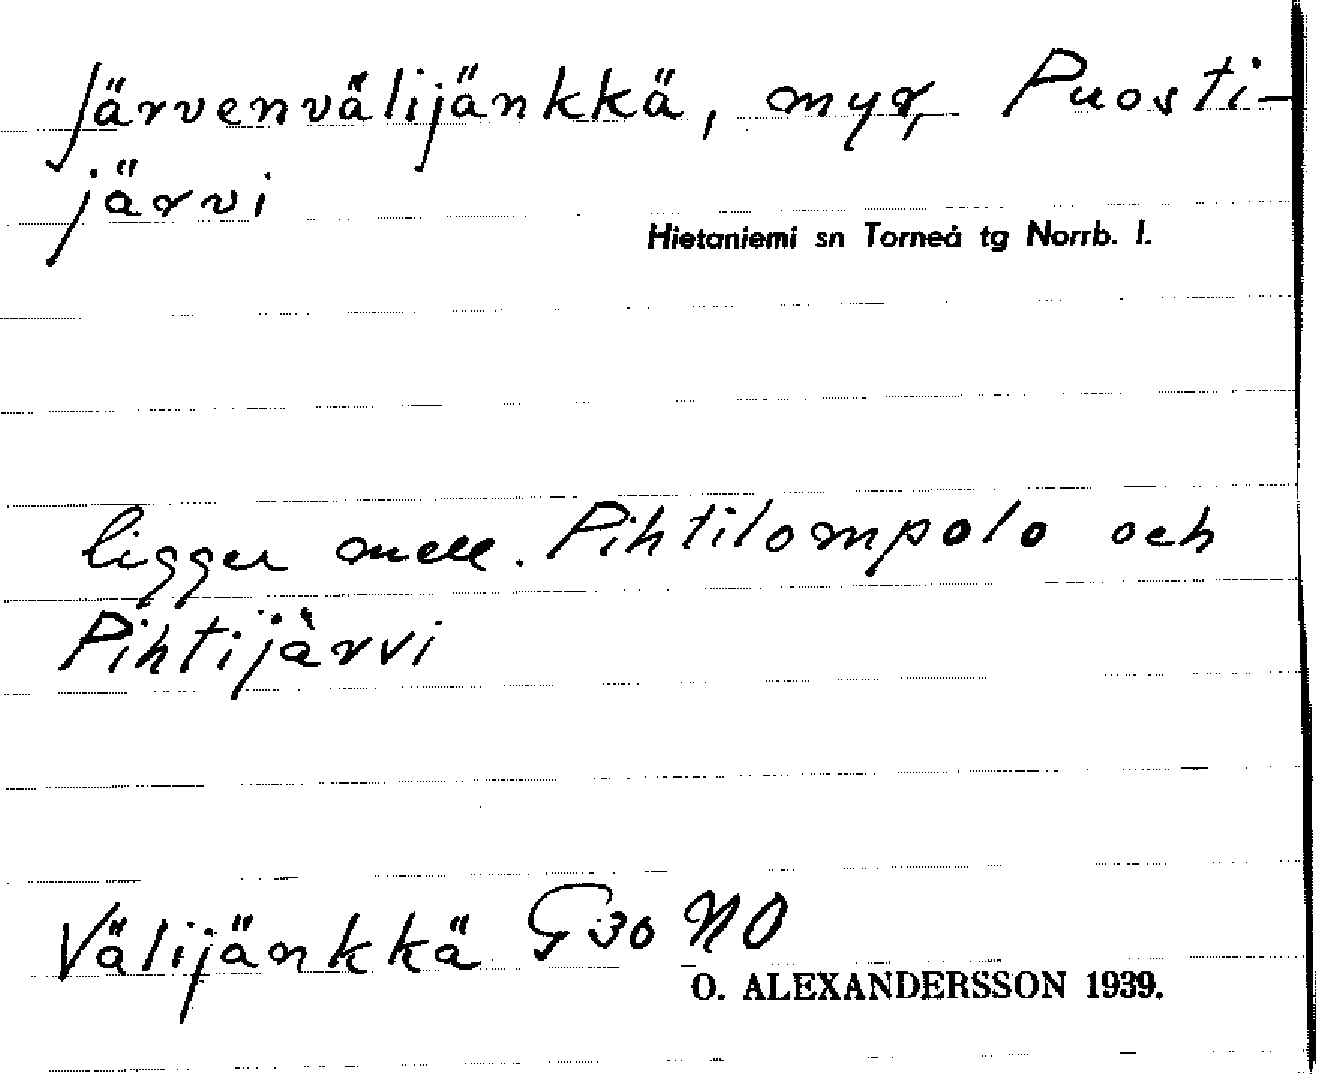 Järvenvälijänkkä, myr, Puosti-
järvi
Hietaniemi sn Torneå tg Norrb. l.
ligger mell. Pihtilompolo och
Pihtijärvi
Välijänkkä G30 NO
O. ALEXANDERSSON 1939.